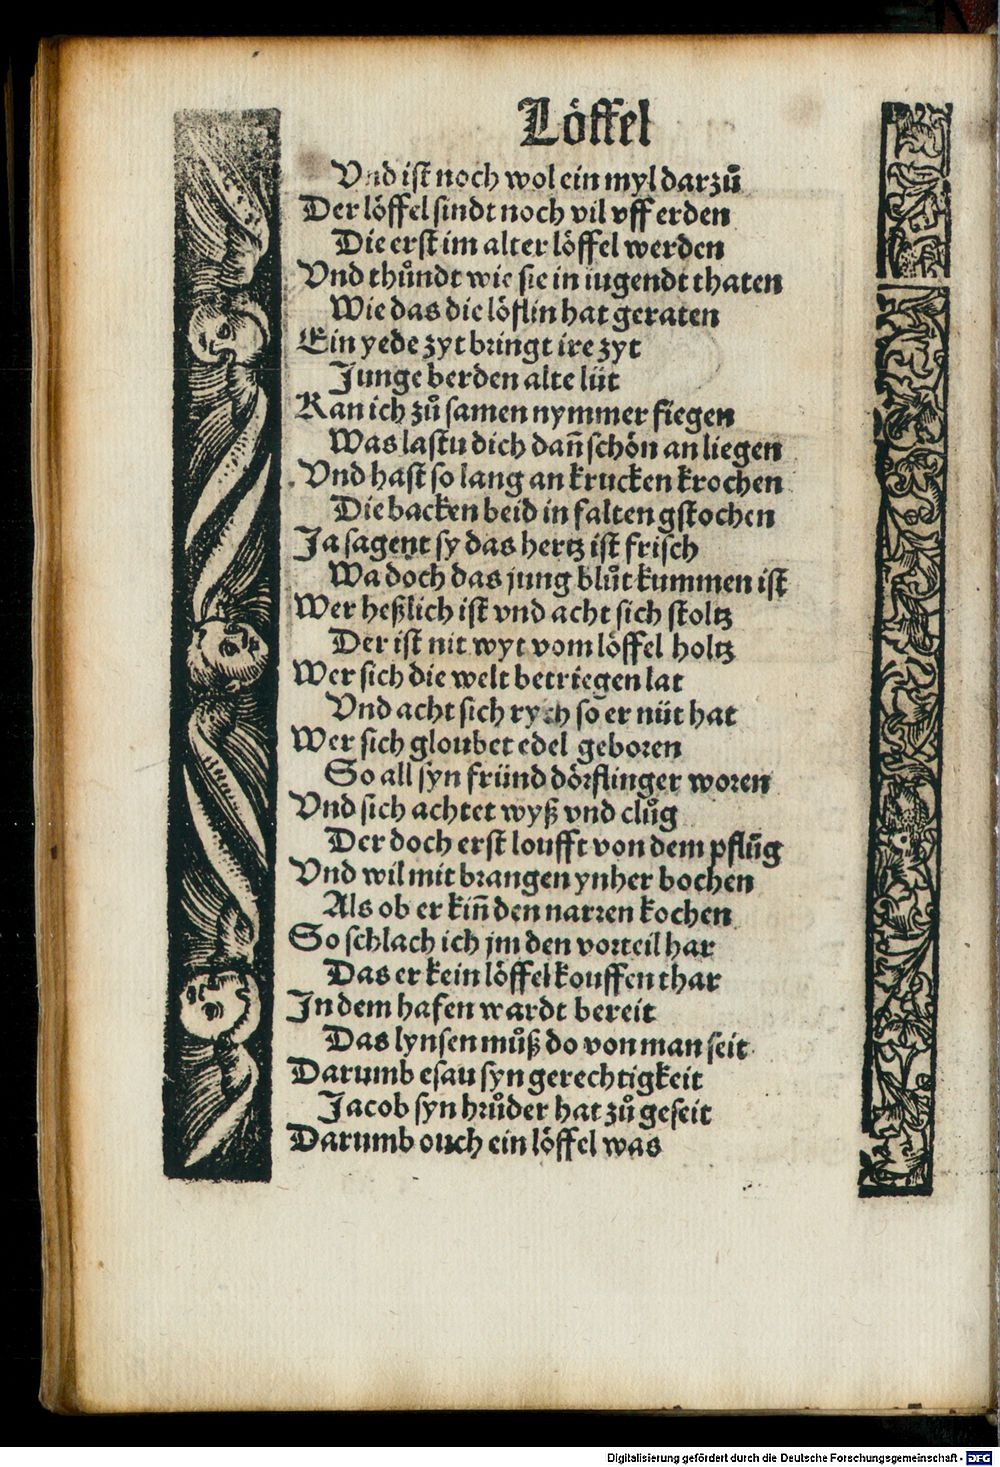 Löffel
Vnd ist noch wol ein myl darzů
Der löffel sindt noch vil vff erden
Die erst im alter löffel werden
Vnd thůndt wie sie in iugendt thaten
Wie das die löflin hat geraten
Ein yede zyt bringt ire zyt
Junge berden alte lüt
Kan ich zů samen nymmer fiegen
Was lastu dich dañ schön an liegen
Vnd hast so lang an krucken krochen
Die backen beid in falten gstochen
Ja sagent sy das hertz ist frisch
Wa doch das jung blůt kummen ist
Wer heßlich ist vnd acht sich stoltz
Der ist nit wyt vom löffel holtz
Wer sich die welt betriegen lat
Vnd acht sich rych so er nüt hat
Wer sich gloubet edel geboren
So all syn fründ dörflinger woren
Vnd sich achtet wyß vnd clůg
Der doch erst loufft von dem pflůg
Vnd wil mit brangen ynher bochen
Als ob er kiñ den narren kochen
So schlach ich jm den vorteil har
Das er kein löffel kouffen thar
In dem hafen wardt bereit
Das lynsen můß do von man seit
Darumb esau syn gerechtigkeit
Jacob syn brůder hat zů geseit
Darumb ouch ein löffel was
Digitalisierung gefördert durch die Deutsche Forschungsgemeinschaft - DFG